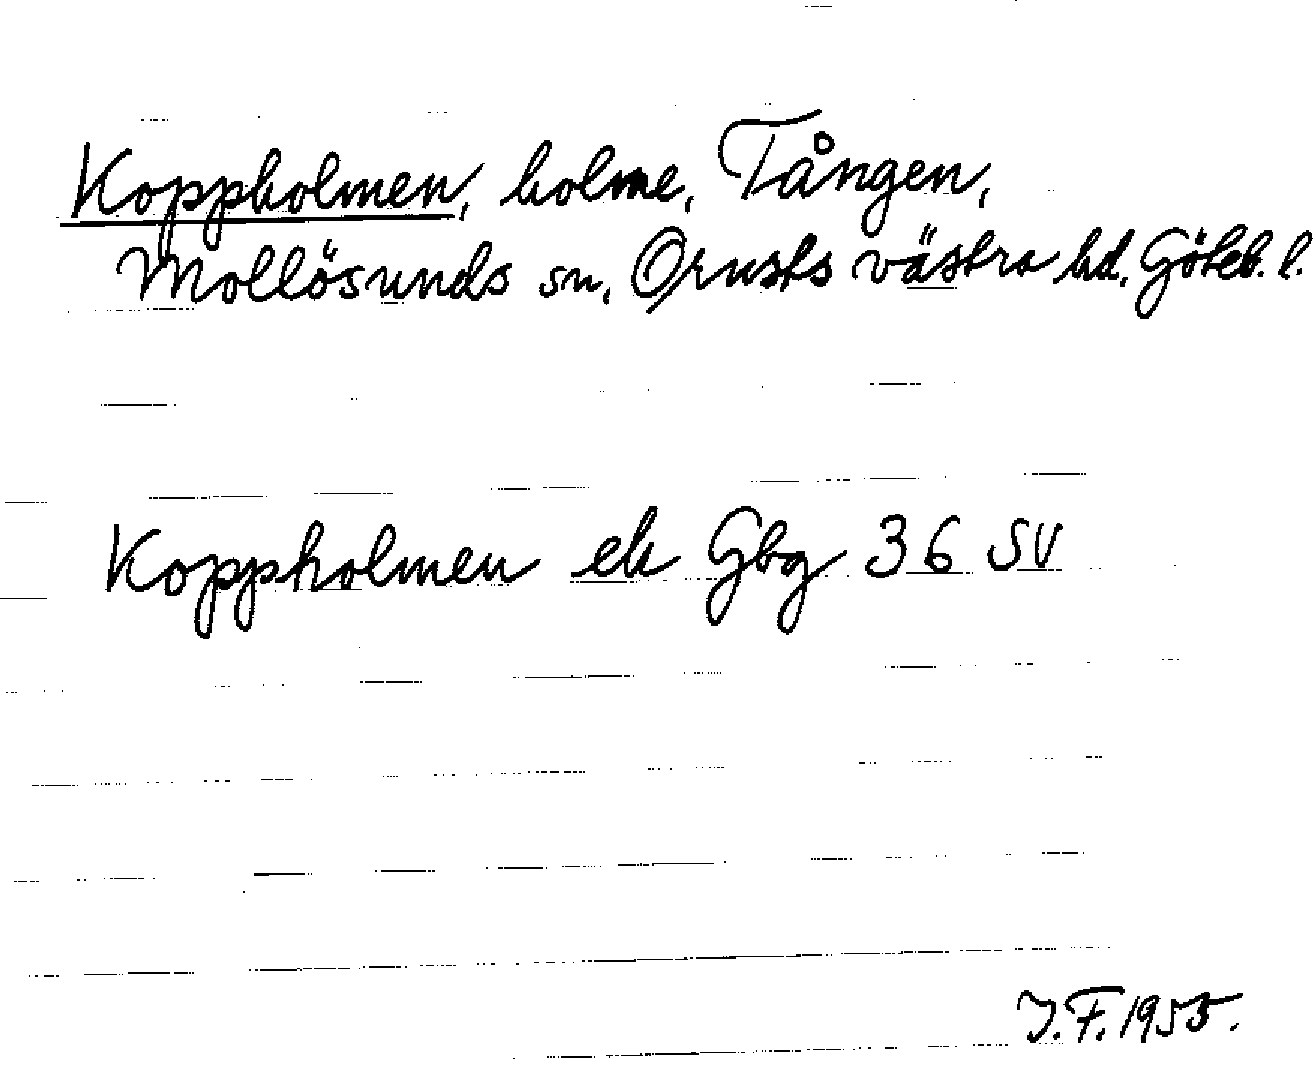 Koppholmen, holme, Tången,
Mollösunds sn, Orusts västra hd, Göteb. l.
Koppholmen ek Gbg 36 SV
J.F. 1955.